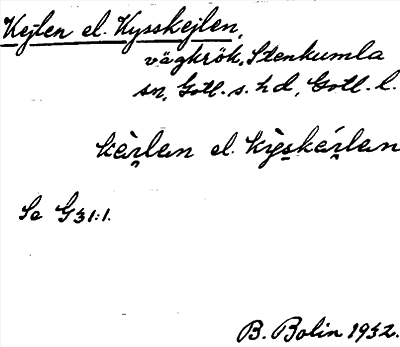 Kejlen el. Kysskejlen,
vägkrök, Stenkumla
sn, Gotl. s. hd, Gotl. l.
kè̯ı̯lən el. kỳskéı̯lən
Se G31:1.
B. Bolin 1932.